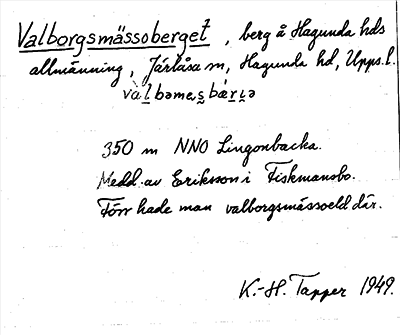 Valborgsmässoberget, berg å Hagunda hds
allmänning, Järlåsa sn, Hagunda hd, Upps. l.
350 m NNO Lingonbacka.
Medd. av Eriksson i Fiskmansbo.
Förr hade man valborgsmässoeld där.
K.-H. Tapper 1949.